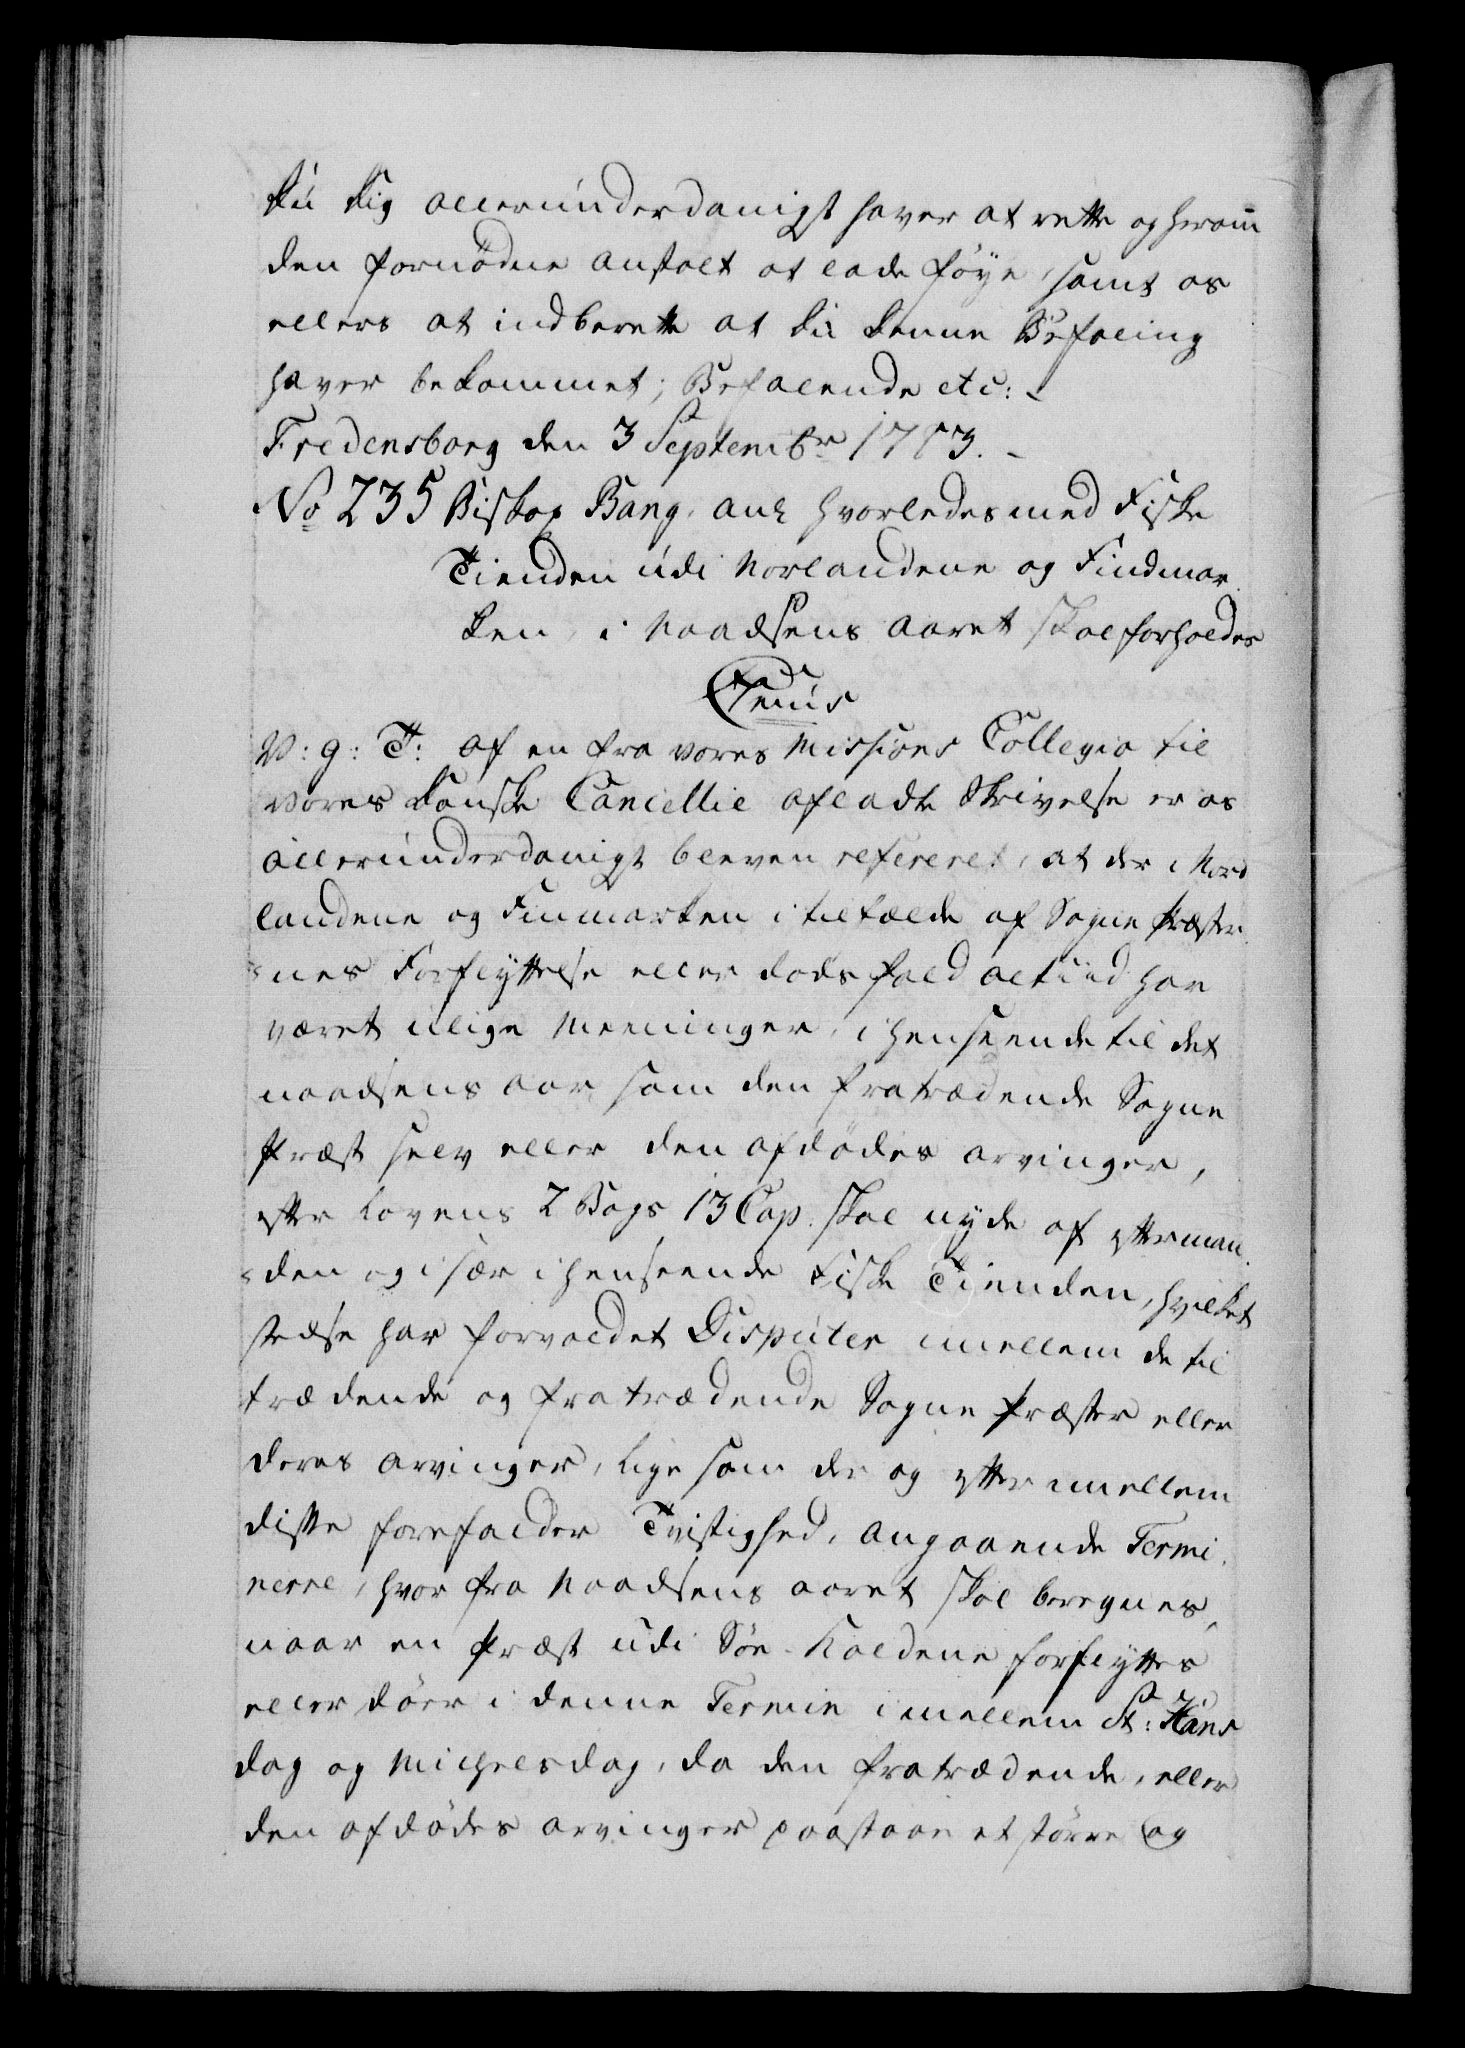 du dig allerunderdanigst haver at rette og herom
den fornödne anstalt at lade föye, samt os
ellers at indberette at du denne Befaling
haver bekommet; Befalende etc:
Fredensborg den 3 Septembr 1773.
No 235 Biskop Bang, anl hvorledes med Fiske
Tienden udi Norlandene og Findmar
ken, i Naadsens aaret skal forholdes
V: g: T: af en fra vores Missions Collegio til
vores danske Cancellie afladte Skrivelse er os
allerunderdanigst bleven refereret, at der i Nord
landene og Finmarken i tilfælde af Sogne Præster
nes Forflyttelse eller döds fald altiid har
været ulige Meeninger, i henseende til det
naadsens aar som den fratrædende Sogne
Præst selv eller den afdödes arvinger,
efter Lovens 2 Bogs 13 Cap. skal nyde af efterman
den og i sær i henseende Fiske Tienden, hvilket
stedse har forvoldet Disputer imellem de til
trædende og fratrædende Sogne Præster eller
deres arvinger, lige som der og ofte imellem
disse forefalder Tvistighed, angaaende Termi
nerne, hvor fra Naadsens aaret skal beregnes,
naar en Præst udi Söe-Kaldene forflyttes
eller döer i denne Termin imellem St: Hans
dag og Michelsdag, da den fratrædende, eller
den afdödes arvinger paastaae et större og